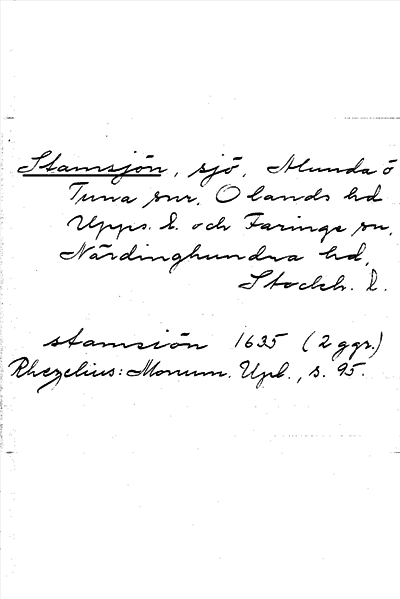 Stamsjön, sjö, Alunda ö
Tuna snr, Olands hd
Upps. l. och Faringe sn,
Närdinghundra hd,
Stockh. l.
stamsiön 1635 (2 ggr.)
Rhezelius: Monum. Upl., s. 95.